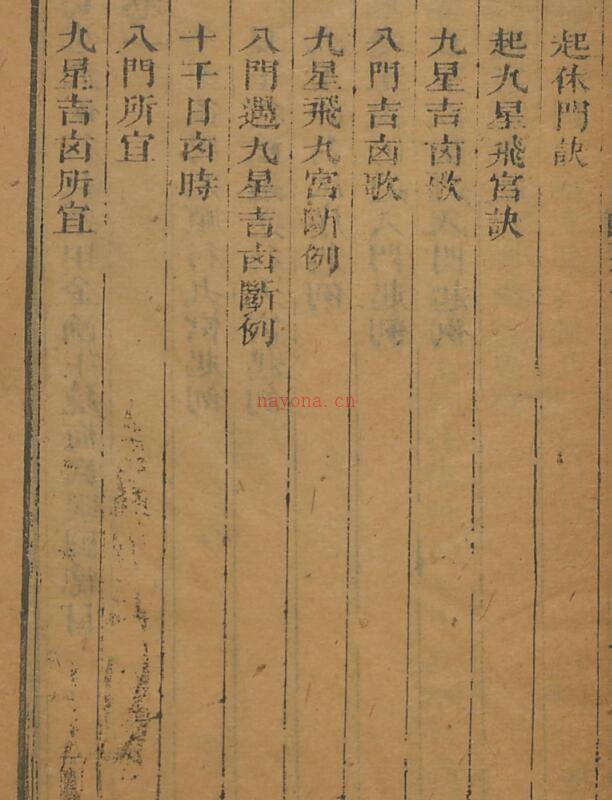 起休門訣
起九星飛宮訣
九星吉凶歌
八門吉凶歌
九星飛九宮斷例
八門遇九星吉凶斷例
十干日凶時
八門所宜
九星吉凶所宜
nayona.cn